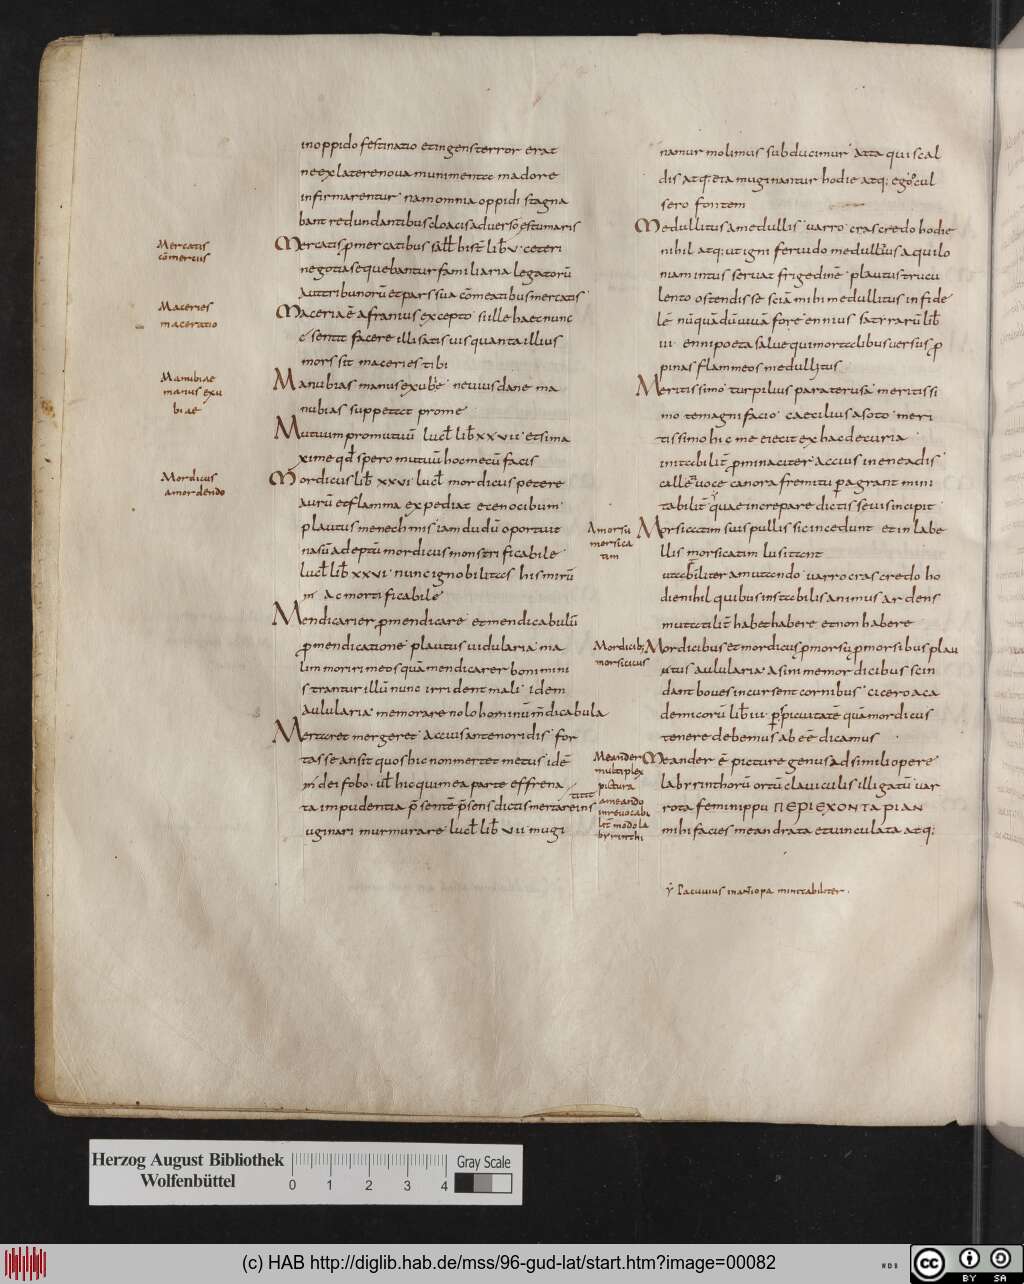 in oppido festinatio et ingens terror erat
ne ex latere nova munimenta madore
infirmarentur nam omnia oppidi stagna
bant redundantibus cloacis adverso æstu maris
Mercatis
cōmercius
Mercatis p mercatibus sall̄ hist̄ lib̄ v ceteri
negotia sequebantur familiaria legatorū
aut tribunorū et pars sua cōmeatibus mercatis
Maceries
maceratio
Maceria ē afranius excepto si ille haec nunc
sentit facere illi satis vis quanta illius
mors sit maceries tibi
Manubiae
manus exu
biae
Manubias manus exubie nevius dane ma
nubias suppetat prome
Mutuum pro mutuū lucl̄ lib̄ xxvii et si ma
xime qd̄ spero mutuū hoc mecū facis
Mordicus
a mordendo
Mordicus lib̄ xxvi lucl̄ mordicus petere
aurū et flamma expediat e cenocibum
plautus menechmis iam dudū oportuit
nasū adeptū mordicus monstrificabile
lucl̄ lib̄ xxvi nunc ignobilitas his mirū
ac mortificabile
Mendicarier p mendicare et mendicabulū
p mendicatione plautus vidularia ma
lim moriri meos quā mendicarer boni mini
strantur illū nunc irrident mali idem
aulularia memorare nolo hominū mdicabula
Mertaret mergeret accius antenoridis for
tasse an sit quos hic non mertet metus idē
deifobo vl̄ hic qui mea parte effrena
ta impudentia p̄sentē p̄sens dictis mertare ins
titit
uginari murmurare lucl̄ lib̄ vii mugi
namur molimus subducimur atta qui scal
dis atq; eia muginantur hodie atq; ego ocul
sero fontem
Medullitus a medullis varro cras credo hodie
nihil atq; ut igni fervido medullitus aquilo
niam intus servat frigedinē plautus trucu
lento ostendisse sciā mihi medullitus in fide
lē nūquā dū vivā fore ennius satyrarū lib̄
iii enni poeta salve qui mortalibus versus p
pinas flammeos medullitus
Meritissimo turpilius paraterusa meritissi
mo te magnifacio caecilius asoto meri
tissimo hic me eiecit ex hac decuria
minitabilit̄ p minaciter accius in eneadis
calleti voce canora fremitu peragrant mini
tabilit̄ quae increpare dictis sevis incipit
Amorsu
morsica
tim
Morsicatim suis pullis sic incedunt et in labe
llis morsicatim lusitant
utabiliter a mutando varro cras credo ho
die nihil quibus instabilis animus ardens
mutatilit̄ habet habere et non habere
Mordicib;
morsicius
Mordicibus et mordicus p morsu p morsibus plau
utus aulularia asini me mordicibus scin
dant boves incursent cornibus cicero aca
demicorū lib̄ iii pspicuitatē quā mordicus
tenere debemus abeē dicamus
Meander
multiplex
pictura
a meando
inrevocabi
lit̄ modo la
byrinthi
Meander ē picture genus ad simili opere
labyrinthorū ortū claviculis illigatū var
ro ta feminippu ΠΕΡΙΕΧΟΝΤΑΡΙΑΝ
mihi facies meandrata et vinculata atq;
Pacuvius in aniopa minitabiliter.
Herzog August Bibliothek
Wolfenbüttel
0 1 2 3 4
Gray Scale
(c) HAB http://diglib.hab.de/mss/96-gud-lat/start.htm?image=00082
WDB
cc BY SA